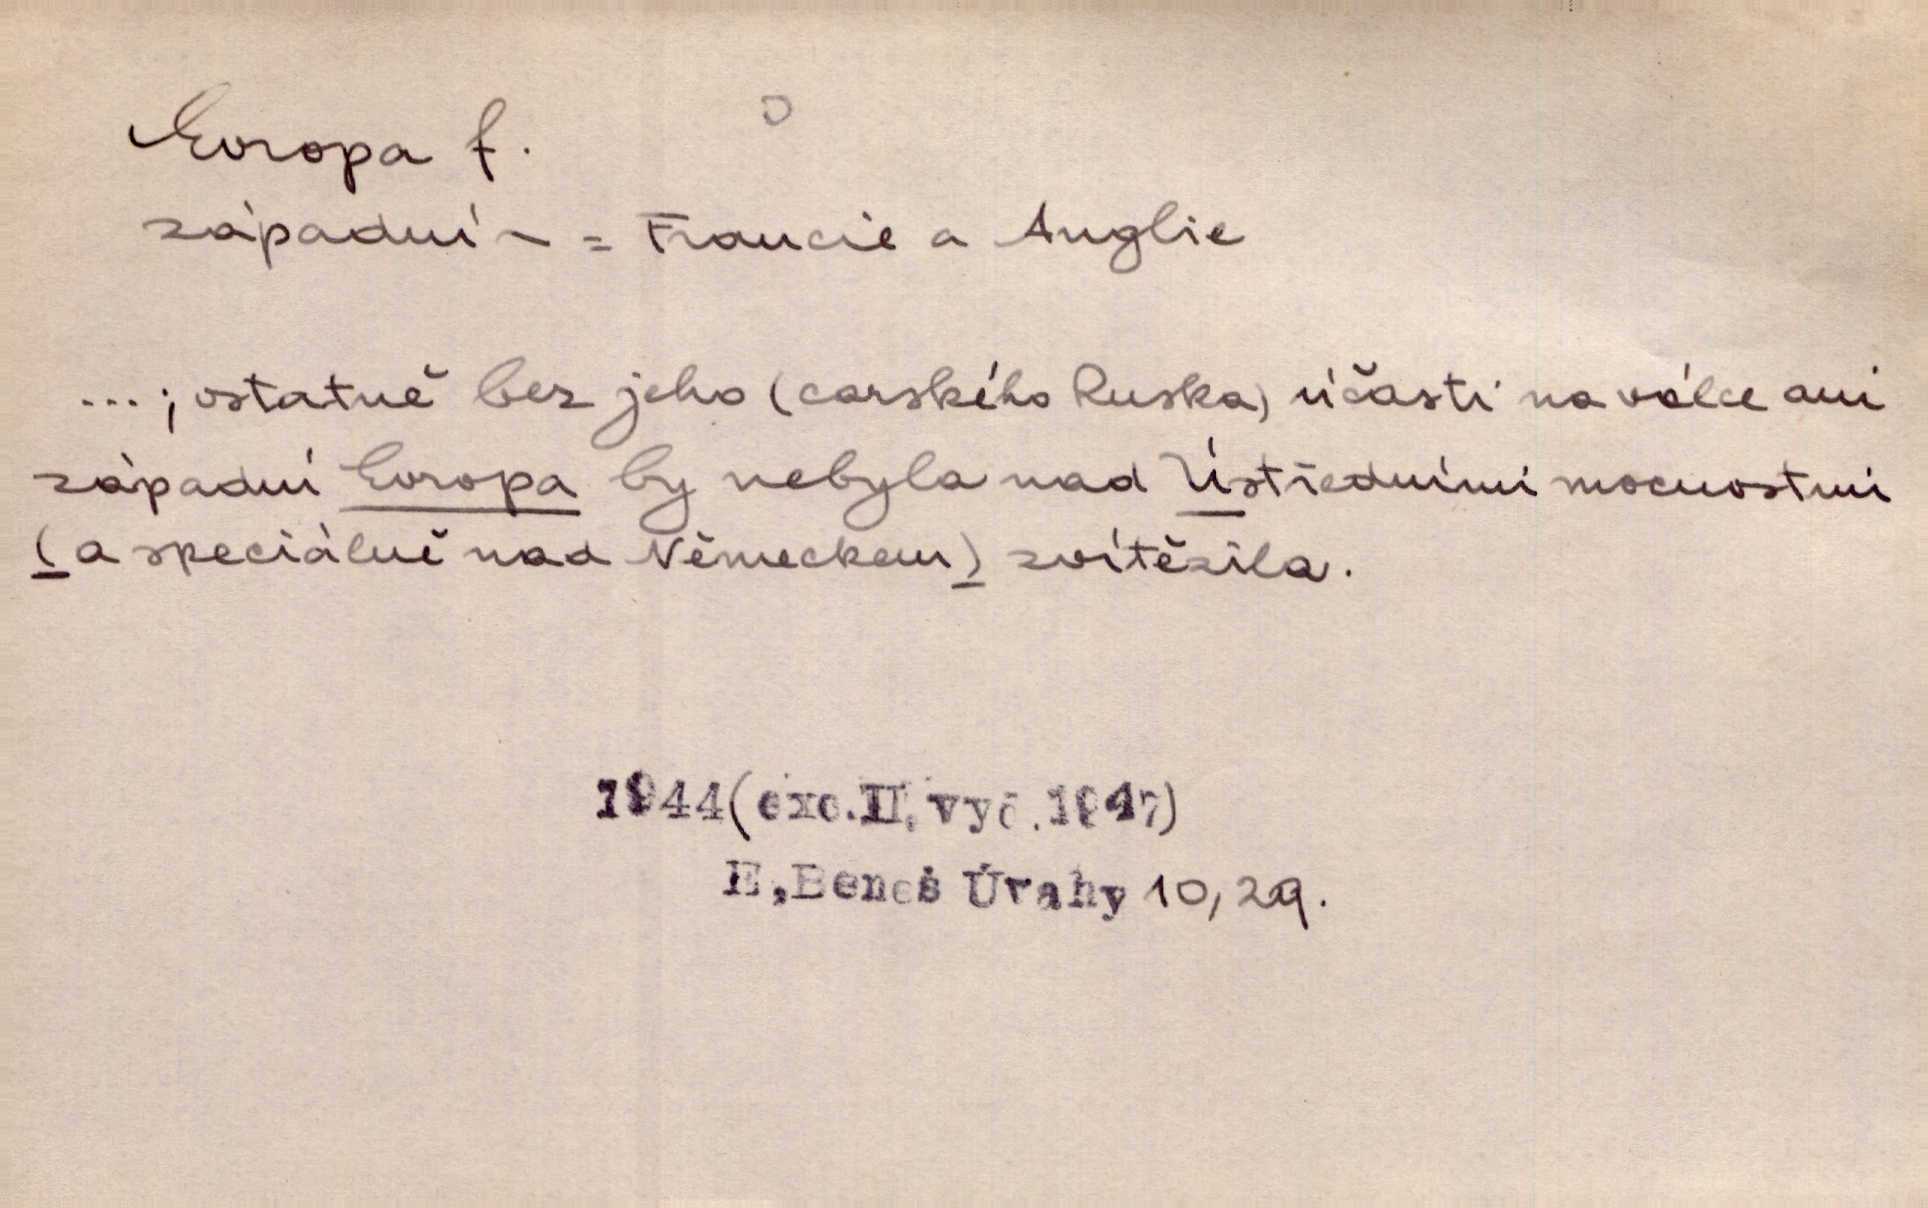 Evropa f.
západní ~ = Francie a Anglie
...; ostatně bez jeho (carského Ruska) účasti na válce ani
západní Evropa by nebyla nad Ústředními mocnostmi
(a speciálně nad Německem) zvítězila.
1944(exc.II. vyd.1947)
E.Beneš Úvahy 10, 29.